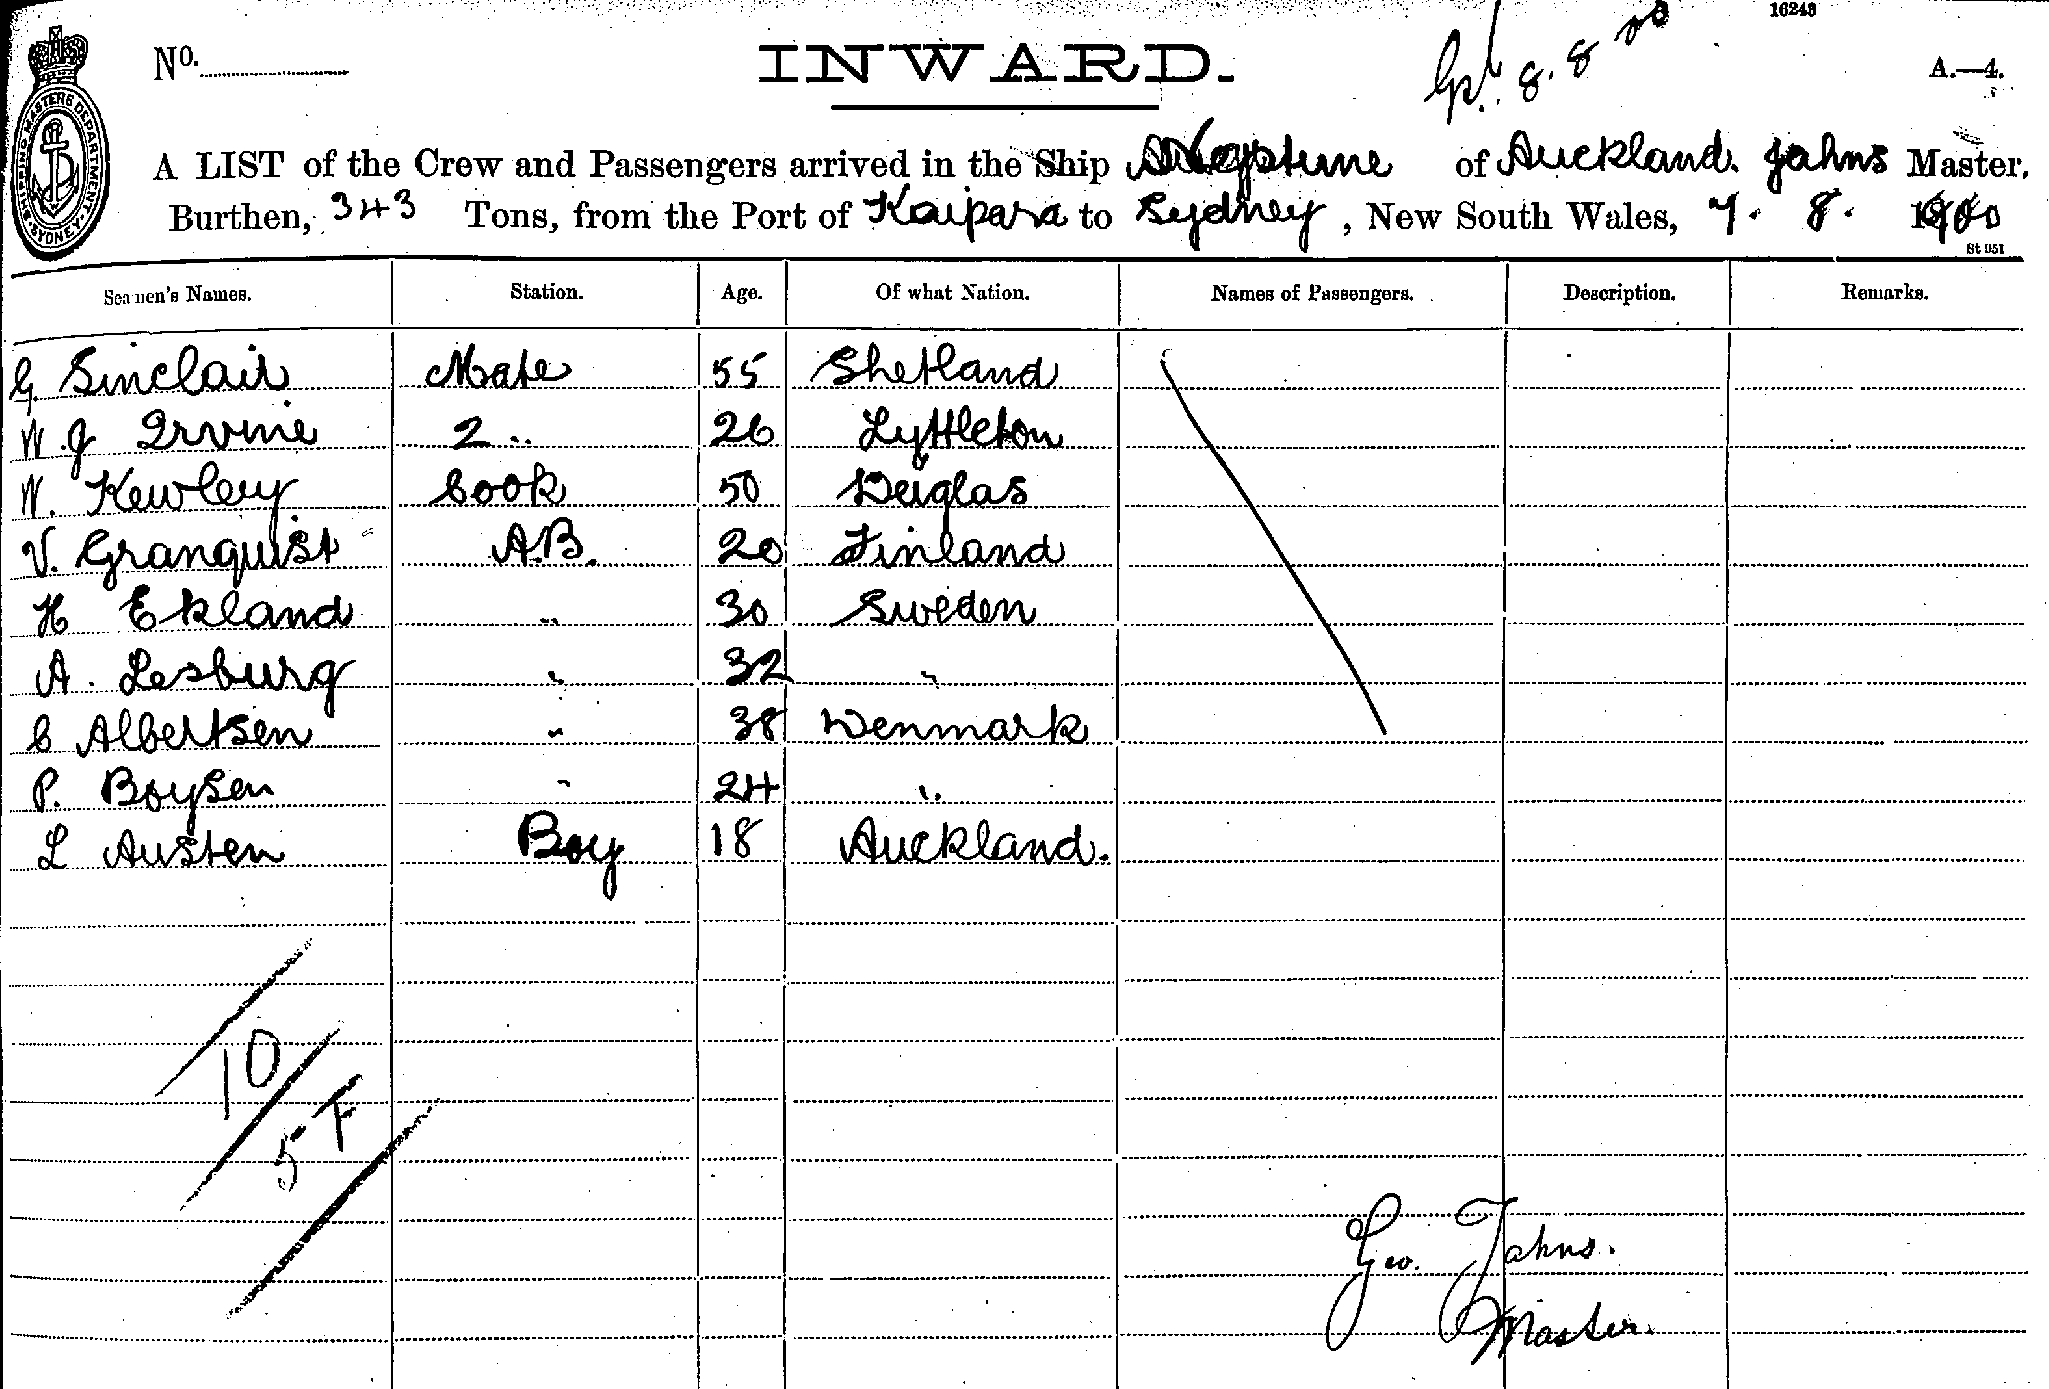 16243
No.
INWARD.
8. 8 00
A.—4.
SHIPPING MASTERS DEPARTMENT. SYDNEY.
A LIST of the Crew and Passengers arrived in the Ship Neptune of Auckland. Jahns Master,
Burthen, 343 Tons, from the Port of Kaipara to Sydney, New South Wales, 7. 8. 1900
St 951
Seamen's Names. Station. Age. Of what Nation. Names of Passengers. Description. Remarks.
G. Sinclair Mate 55 Shetland
W. J Irvine 2 " 26 Lyttleton
W. Kewley Cook 50 Duglas
V. Granquist A.B. 20 Finland
H Ekland " 30 Sweden
A. Lesburg " 32 "
C Albertsen " 38 Denmark
P. Boysen " 24 "
L Austen Boy 18 Auckland.
10
5 F
Geo. Jahns.
Master.